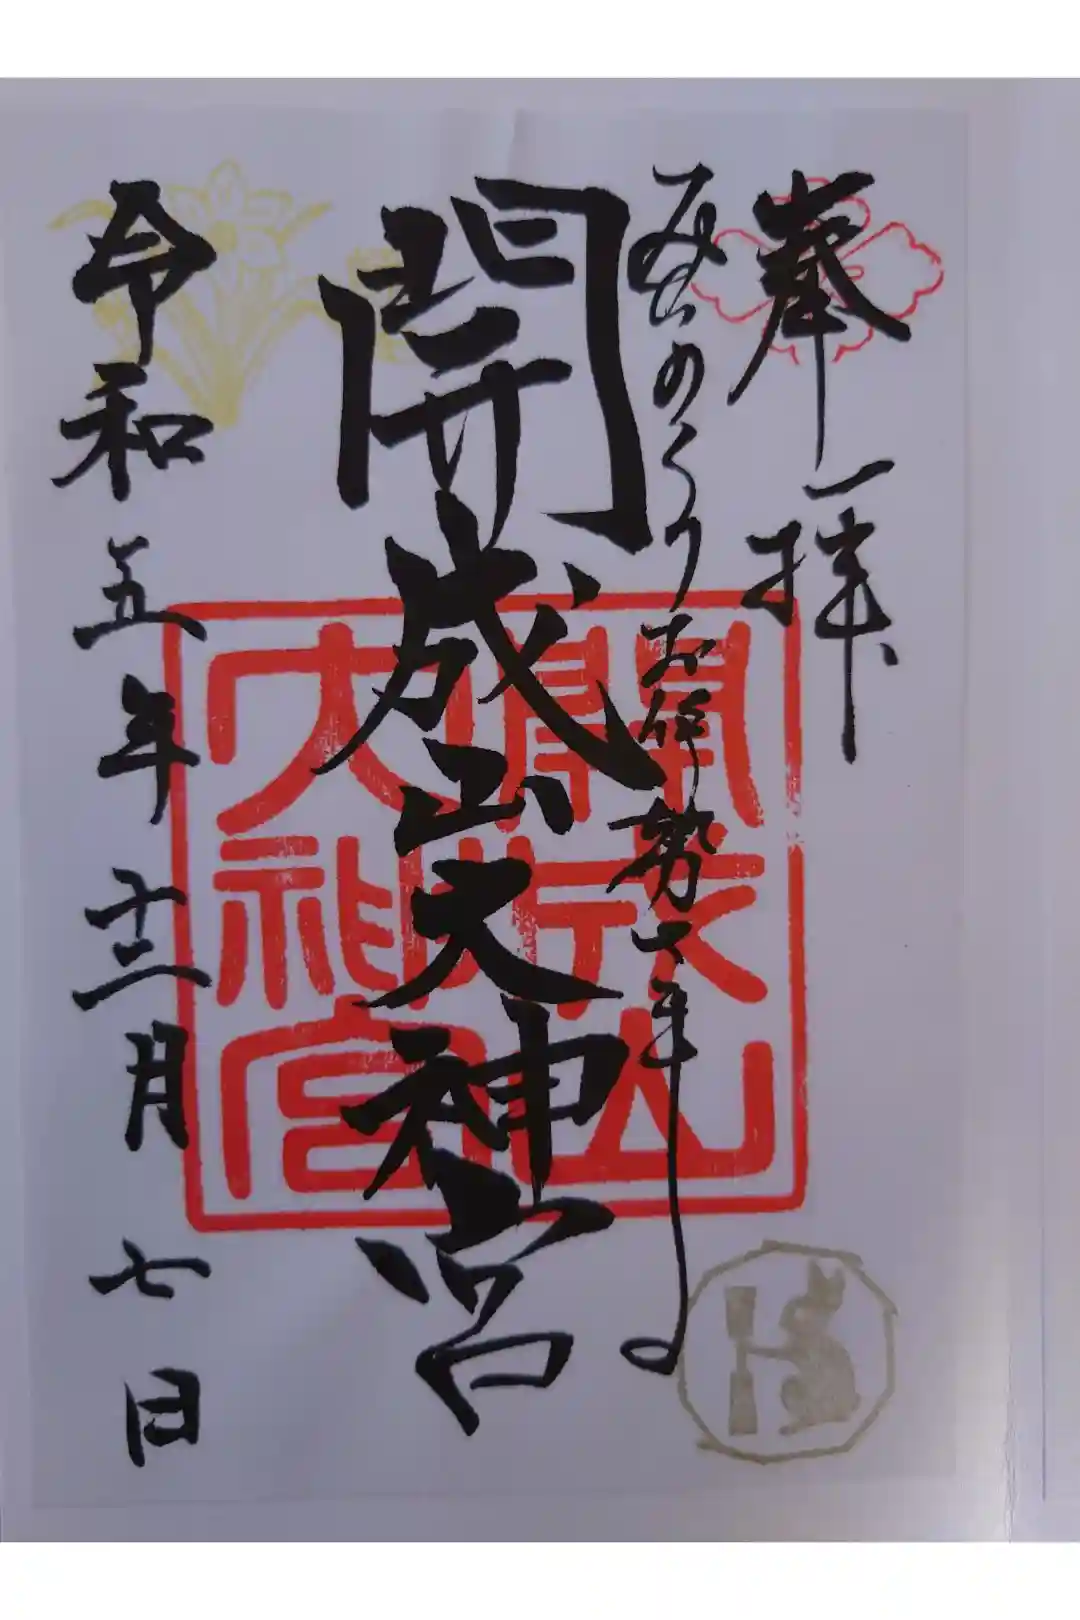 奉拝
みちのくのお伊勢さま
開成山大神宮
開成山
大神宮
令和五年十二月七日